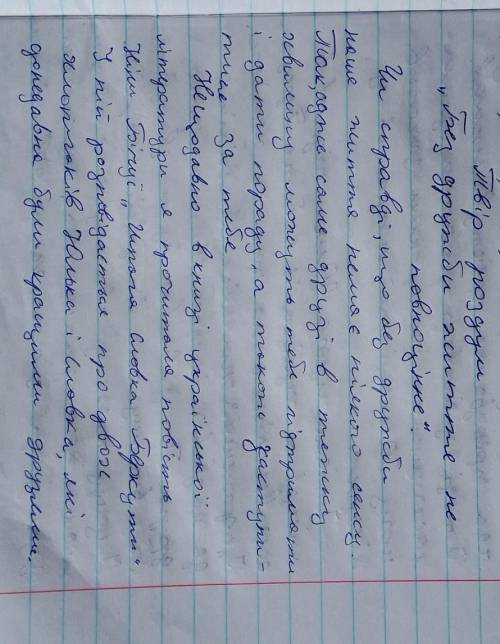 Твір роздум
„Без дружби життя не
повноцінне“
Чи справді, що без дружби
наше життя немає ніякого сенсу.
Так, адже саме друзі в тяжку
хвилину можуть тебе підтримати
і дати пораду, а також заступи-
тися за тебе
Нещодавно в книзі української
літратури я прочитала повість
Ніни Бічуї „Шпага Славка Беркути“.
У ній розповідається про двох
хлопчаків Юлька і Славка, які
донедавна були кращими друзьями.